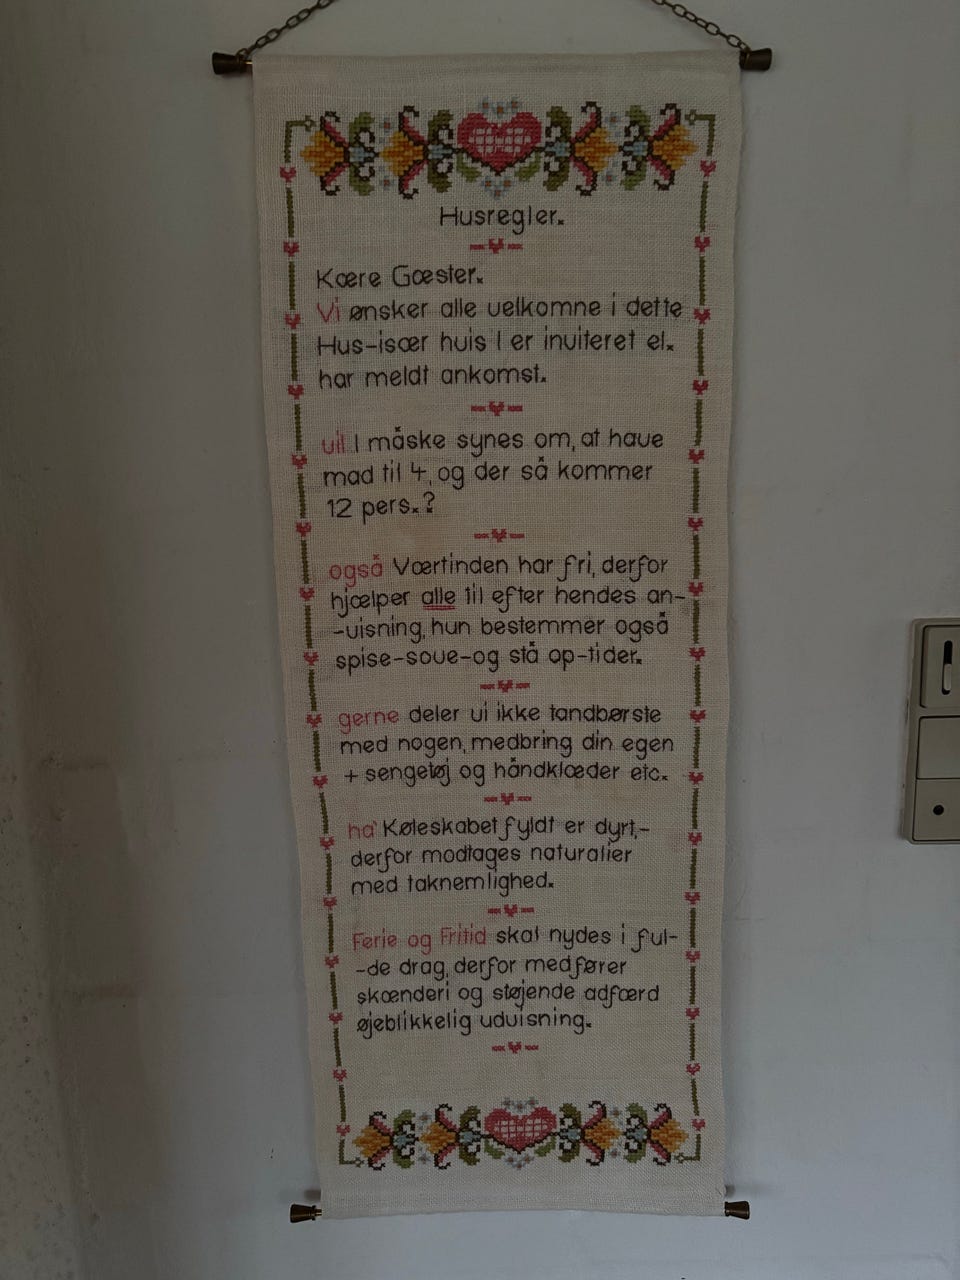 Husregler.
Kære Gæster.
Vi ønsker alle velkomne i dette
Hus-især hvis I er inviteret el.
har meldt ankomst.
vil I måske synes om, at have
mad til 4, og der så kommer
12 pers.?
også Værtinden har fri, derfor
hjælper alle til efter hendes an-
-visning, hun bestemmer også
spise-sove-og stå op-tider.
gerne deler vi ikke tandbørste
med nogen, medbring din egen
+ sengetøj og håndklæder etc.
ha' Køleskabet fyldt er dyrt,-
derfor modtages naturalier
med taknemlighed.
Ferie og Fritid skal nydes i ful-
-de drag, derfor medfører
skænderi og støjende adfærd
øjeblikkelig udvisning.